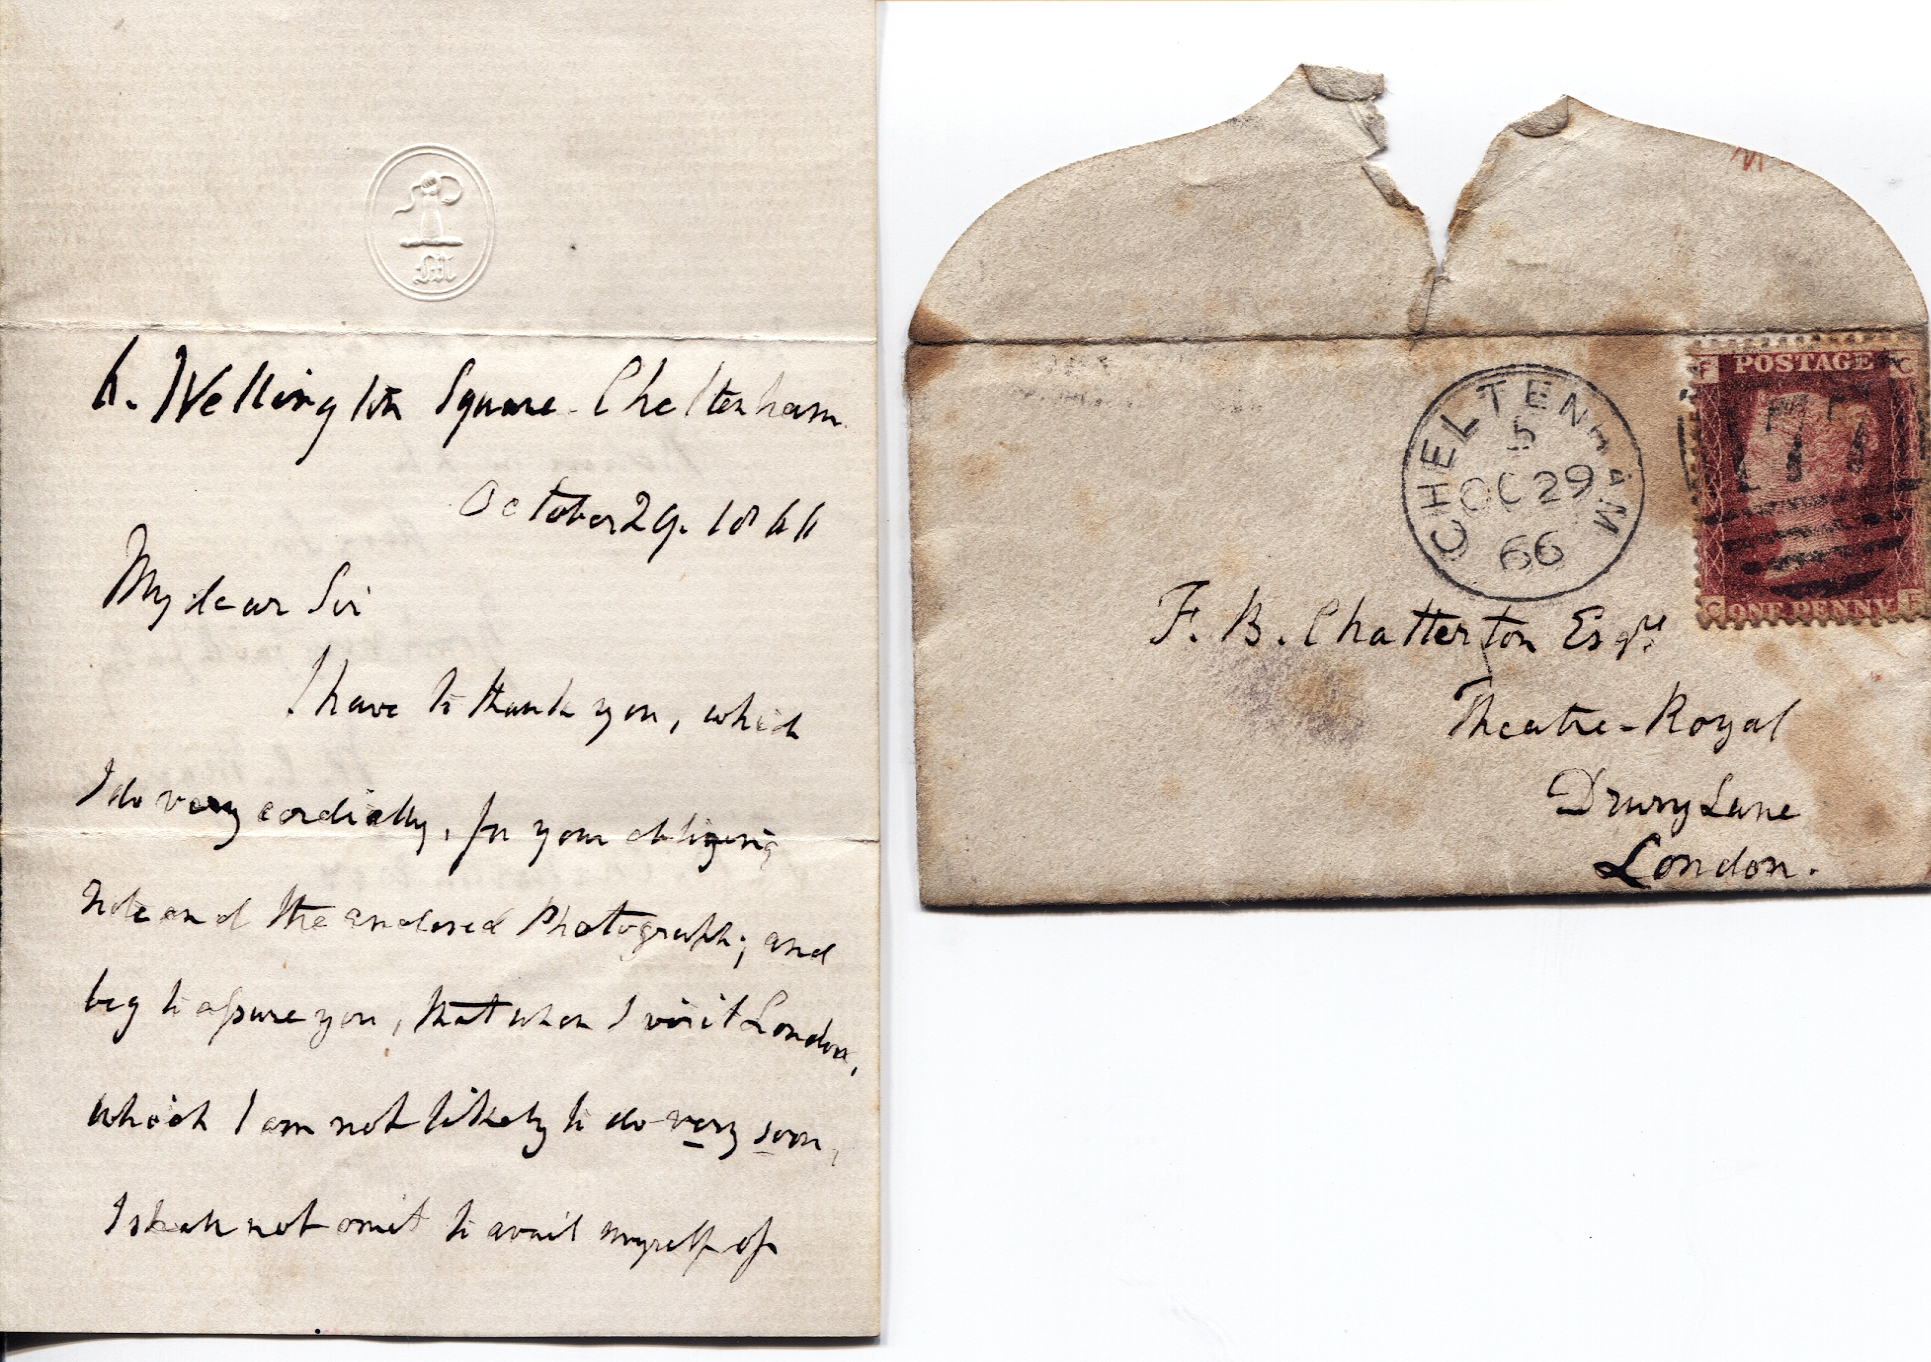 M
6. Wellington Square. Cheltenham
October 29. 1866
My dear Sir
I have to thank you, which
I do very cordially, for your obliging
note and the enclosed Photograph; and
beg to assure you, that when I visit London,
which I am not likely to do very soon,
I shall not omit to avail myself of
CHELTENHAM
5
OC 29
66
F POSTAGE C
C ONE PENNY F
F. B. Chatterton Esqre
Theatre-Royal
Drury Lane
London.